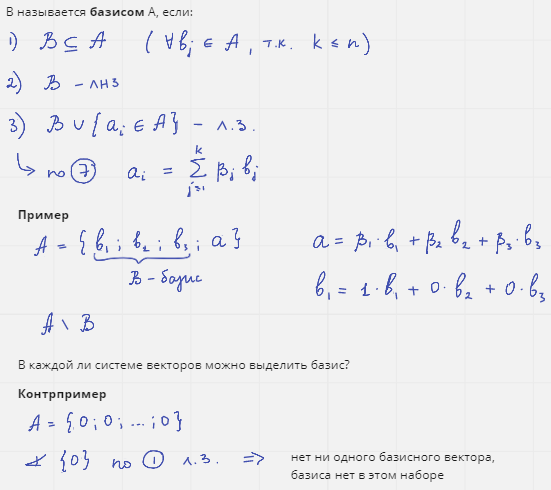 В называется базисом А, если:
1) B ⊆ A ( ∀ bⱼ ∈ A , т.к. k ≤ n )
2) B - лнз
3) B ∪ { aᵢ ∈ A } - л.з.
↳ по ⑦ aᵢ = ∑ⱼ₌₁ᵏ βⱼ bⱼ
Пример
A = { b₁ ; b₂ ; b₃ ; a } a = β₁ · b₁ + β₂ b₂ + β₃ · b₃
B - базис b₁ = 1 · b₁ + 0 · b₂ + 0 · b₃
A \ B
В каждой ли системе векторов можно выделить базис?
Контрпример
A = { 0 ; 0 ; ... ; 0 }
∢ {0} по ① л.з. => нет ни одного базисного вектора,
базиса нет в этом наборе